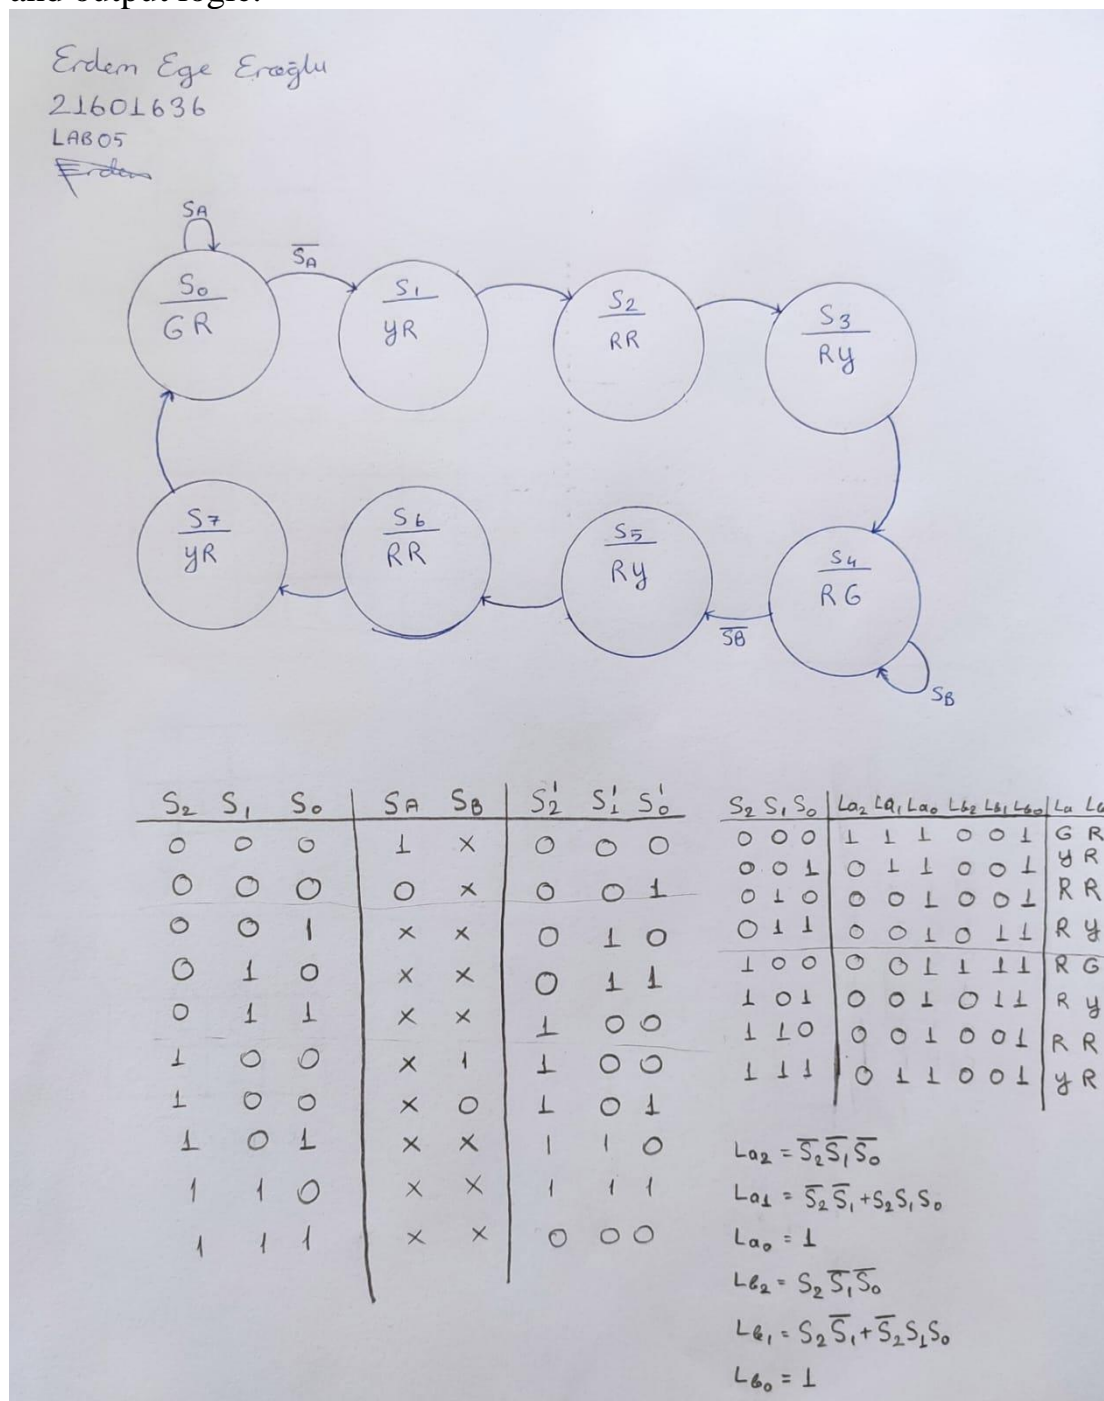 and output logic.
Erdem Ege Eroğlu
21601636
LAB05
SA
S̅A̅
S0
GR
S1
YR
S2
RR
S3
RY
S7
YR
S6
RR
S5
RY
S4
RG
S̅B̅
SB
S2 S1 S0 SA SB S2' S1' S0'
0 0 0 1 x 0 0 0
0 0 0 0 x 0 0 1
0 0 1 x x 0 1 0
0 1 0 x x 0 1 1
0 1 1 x x 1 0 0
1 0 0 x 1 1 0 0
1 0 0 x 0 1 0 1
1 0 1 x x 1 1 0
1 1 0 x x 1 1 1
1 1 1 x x 0 0 0
S2 S1 S0 La2 La1 La0 Lb2 Lb1 Lb0 La
0 0 0 1 1 1 0 0 1 G R
0 0 1 0 1 1 0 0 1 Y R
0 1 0 0 0 1 0 0 1 R R
0 1 1 0 0 1 0 1 1 R Y
1 0 0 0 0 1 1 1 1 R G
1 0 1 0 0 1 0 1 1 R Y
1 1 0 0 0 1 0 0 1 R R
1 1 1 0 1 1 0 0 1 Y R
La2 = S̅2 S̅1 S̅0
La1 = S̅2 S̅1 + S2 S1 S0
La0 = 1
Lb2 = S2 S̅1 S̅0
Lb1 = S2 S̅1 + S̅2 S1 S0
Lb0 = 1